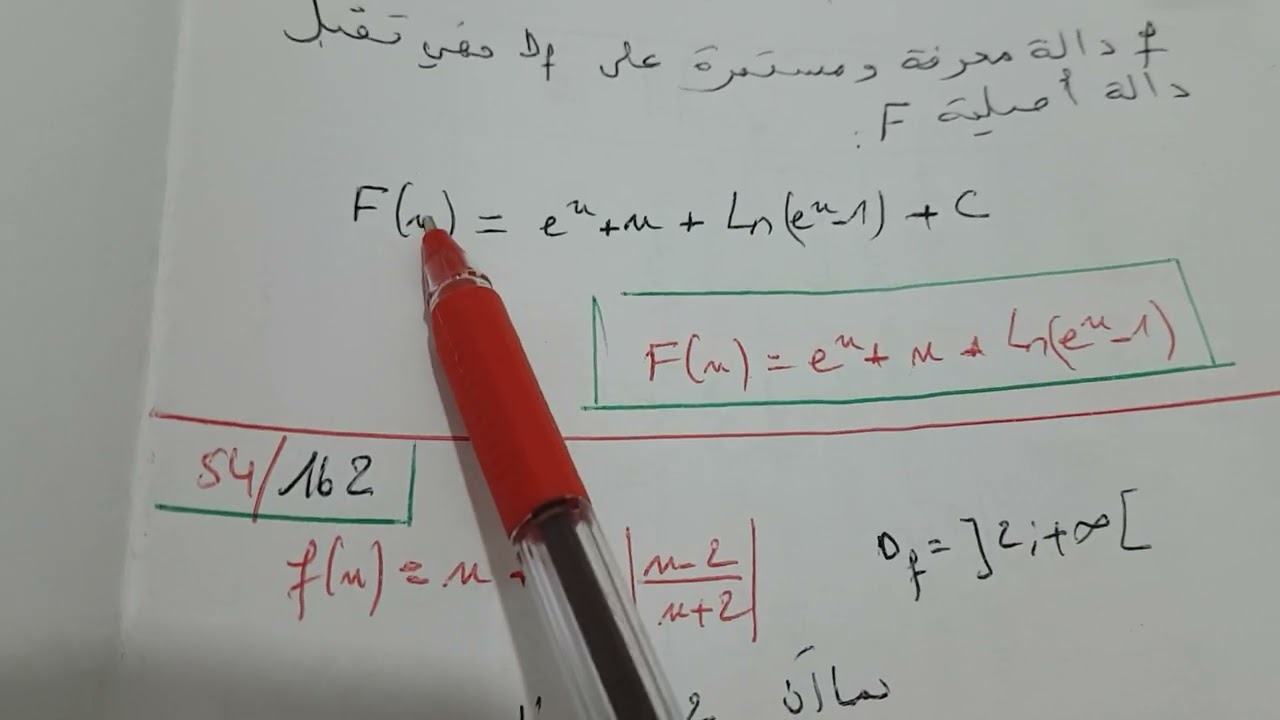 f دالة معرفة ومستمرة على Df فهي تقبل
دالة أصلية F:
F(x) = e^x + x + Ln(e^x - 1) + C
F(x) = e^x + x + Ln(e^x - 1)
54/162
f(x) = x + |x-2 / x+2|
Df = ]2;+∞[
بما أن